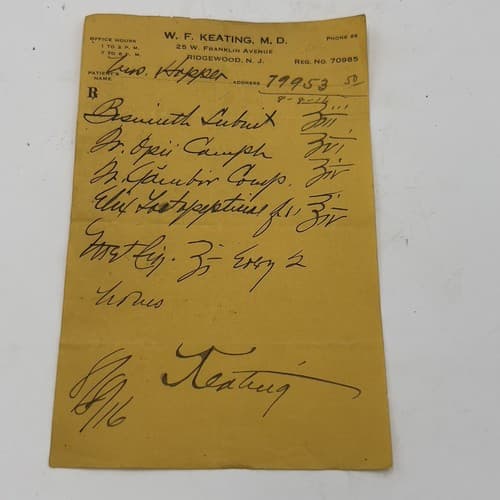 W. F. KEATING, M. D.
OFFICE HOURS
1 TO 3 P. M.
7 TO 8 P. M.
25 W. FRANKLIN AVENUE
PHONE 86
RIDGEWOOD, N. J.
REG. NO. 70985
PATIENT'S NAME Hopper ADDRESS 79953 50
8-8-16
℞
Bismuth Subnit ʒiii
Tr. Opii Camph ʒvi
Tr. Gambir Comp. ʒiv
Elix Lactopeptine
Sig. ʒi Every 2
hours
Keating
8/8/16